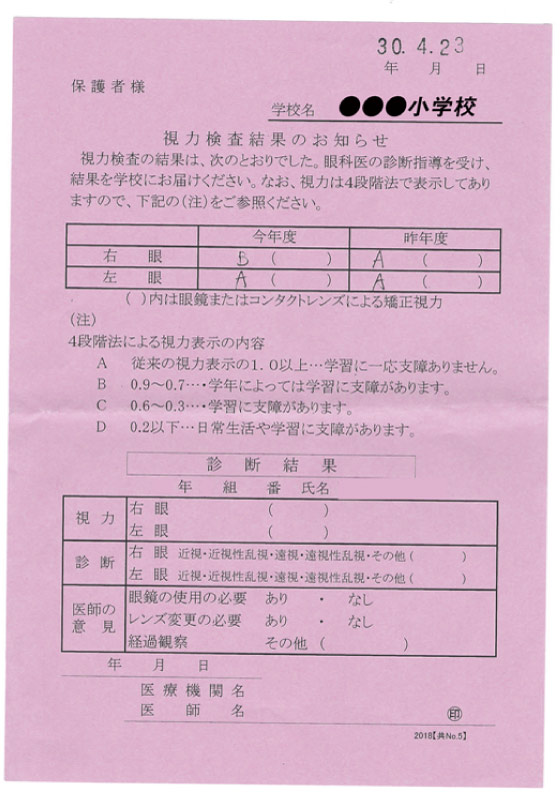 30.4.23
年 月 日
保護者様
学校名 ●●●小学校
視力検査結果のお知らせ
視力検査の結果は、次のとおりでした。眼科医の診断指導を受け、
結果を学校にお届けください。なお、視力は4段階法で表示してあり
ますので、下記の(注)をご参照ください。
今年度 昨年度
右 眼 B ( ) A ( )
左 眼 A ( ) A ( )
( )内は眼鏡またはコンタクトレンズによる矯正視力
(注)
4段階法による視力表示の内容
A 従来の視力表示の1.0以上…学習に一応支障ありません。
B 0.9~0.7…・学年によっては学習に支障があります。
C 0.6~0.3…・学習に支障があります。
D 0.2以下…日常生活や学習に支障があります。
診断結果
年 組 番 氏名
視力 右眼 ( )
左眼 ( )
診断 右眼 近視・近視性乱視・遠視・遠視性乱視・その他( )
左眼 近視・近視性乱視・遠視・遠視性乱視・その他( )
医師の意見 眼鏡の使用の必要 あり ・ なし
レンズ変更の必要 あり ・ なし
経過観察 その他 ( )
年 月 日
医療機関名
医師名 ㊞
2018【共No.5】